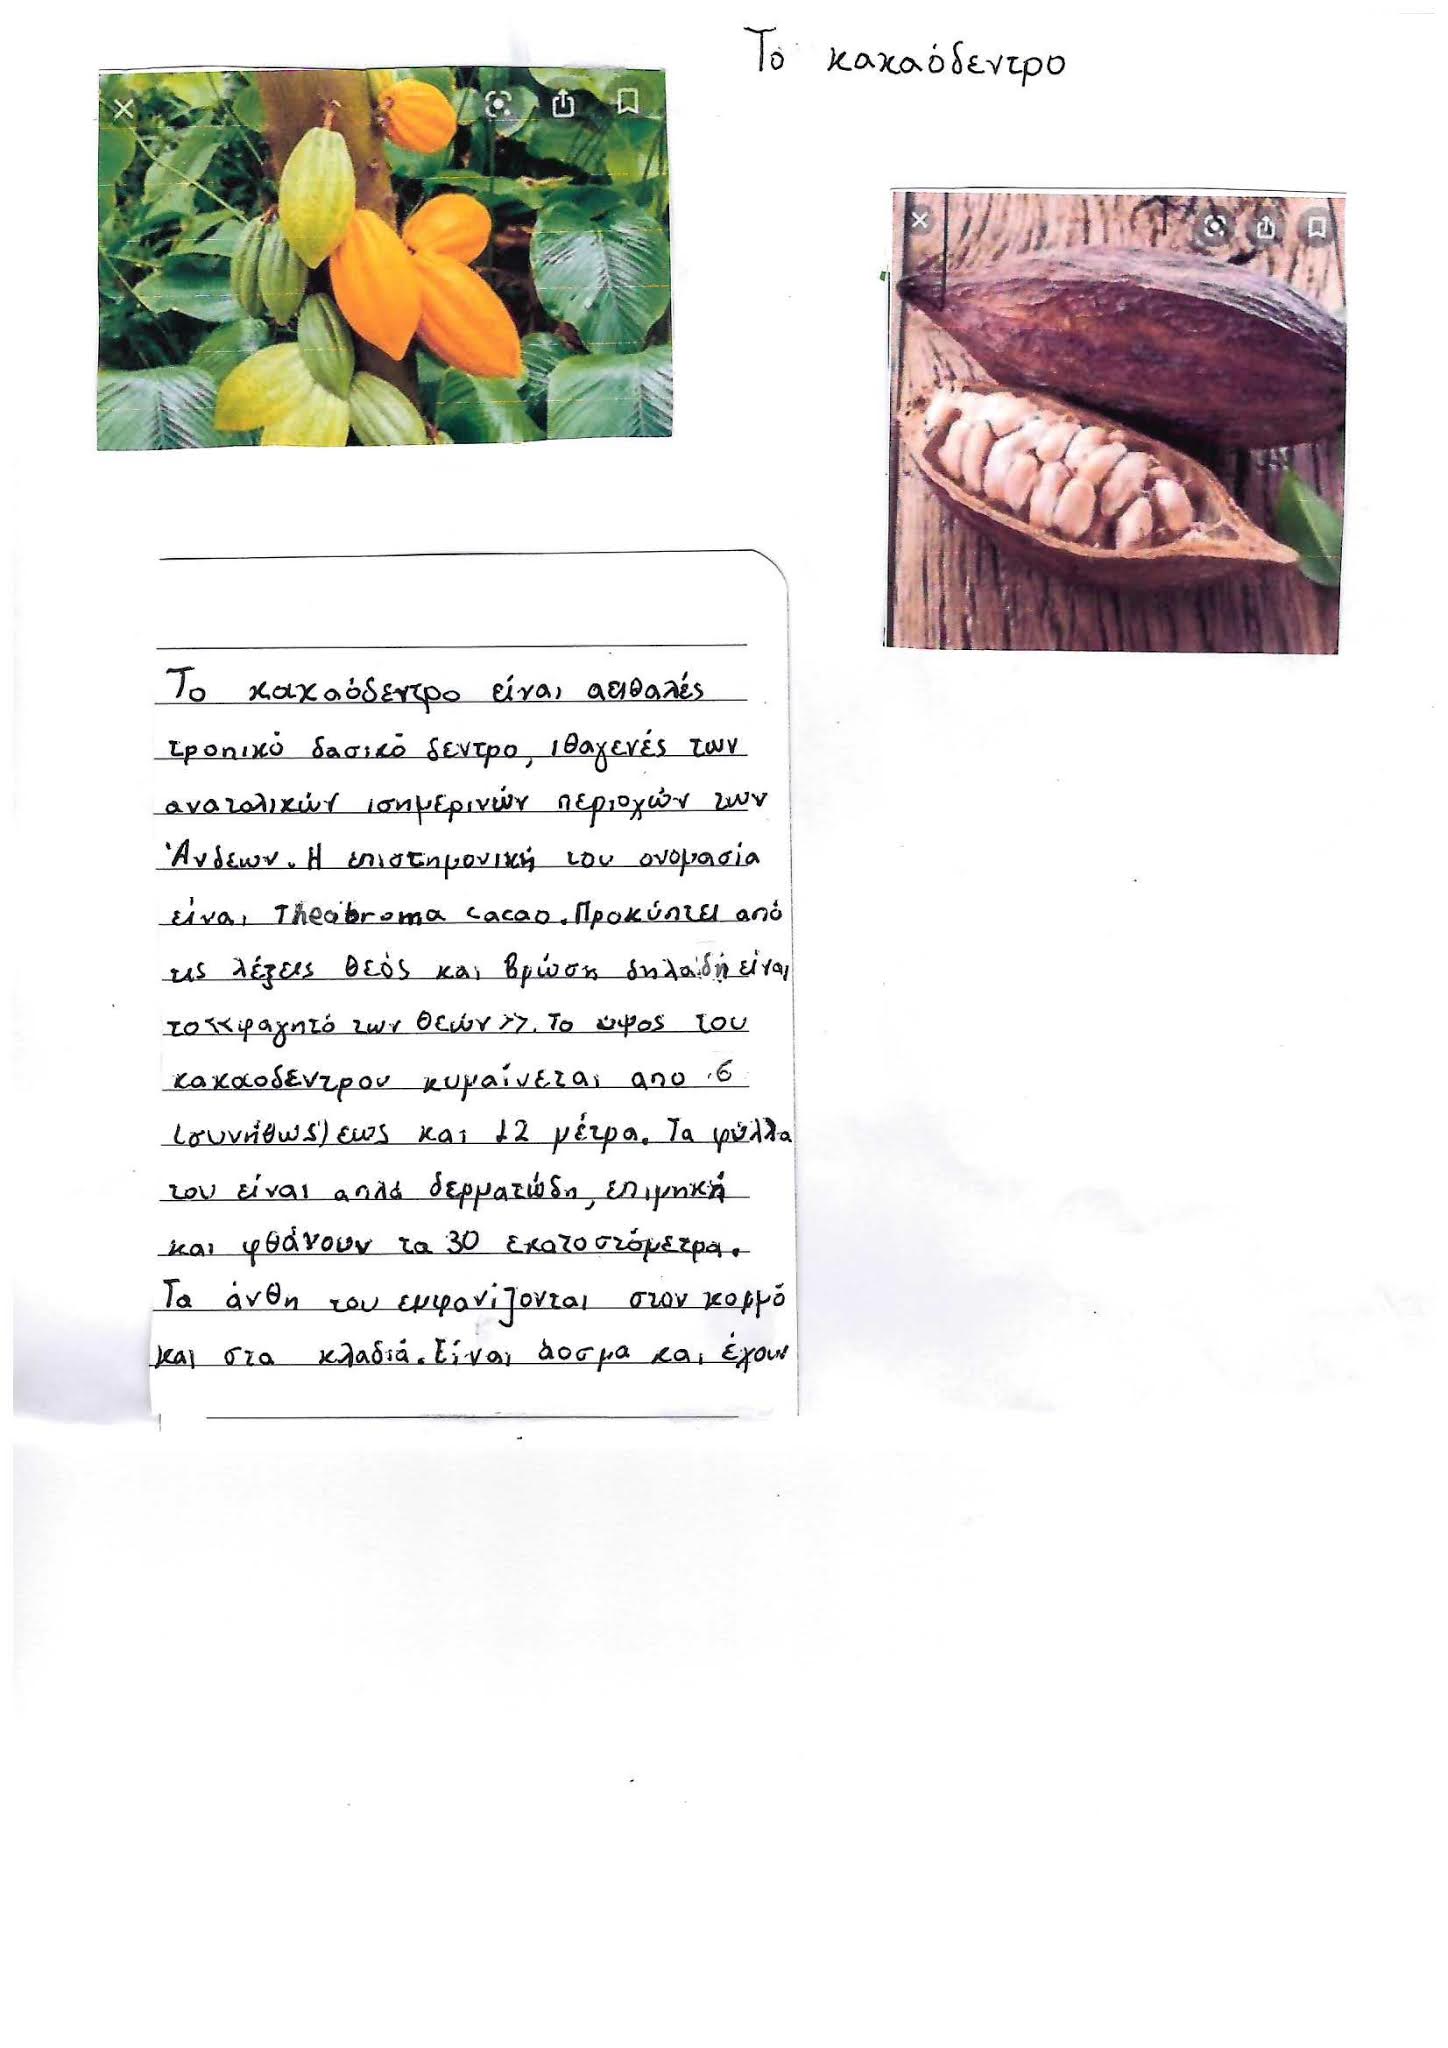 Το κακαόδεντρο
Το κακαόδεντρο είναι αειθαλές
τροπικό δασικό δεντρο, ιθαγενές των
ανατολικών ισημερινών περιοχών των
Άνδεων. Η επιστημονική του ονομασία
είναι Theobroma cacao. Προκύπτει από
τις λέξεις θεός και βρώση δηλαδή είναι
το <<φαγητό των θεών>>. Το ύψος του
κακαοδεντρου κυμαίνεται απο 6
(συνήθως) εως και 12 μέτρα. Τα φύλλα
του είναι απλά δερματώδη, επιμηκή
και φθάνουν τα 30 εκατοστόμετρα.
Τα άνθη του εμφανίζονται στον κορμό
και στα κλαδιά. Είναι άοσμα και έχουν